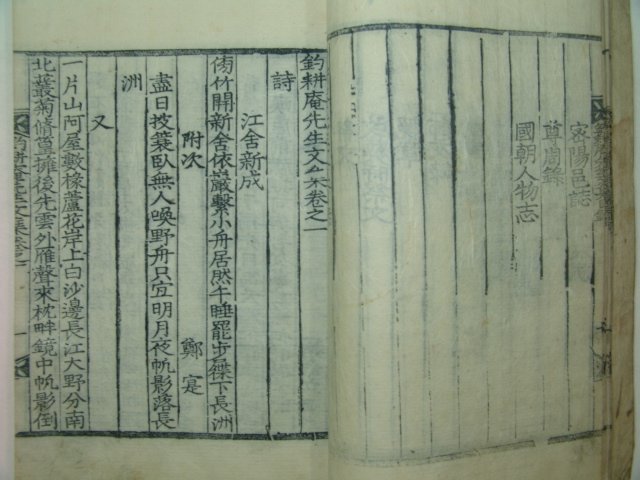 密陽邑誌
尊周錄
國朝人物志
釣耕庵先生文集卷之一
詩
江舍新成
傍竹開新舍依巖繫小舟居然午睡罷步屧下長洲
附次 鄭寔
盡日披簑臥無人喚野舟只宜明月夜帆影落長
洲
又
一片山阿屋數椽蘆花岸上白沙邊長江大野分南
北叢菊脩篁擁後先雲外雁聲來枕畔鏡中帆影倒